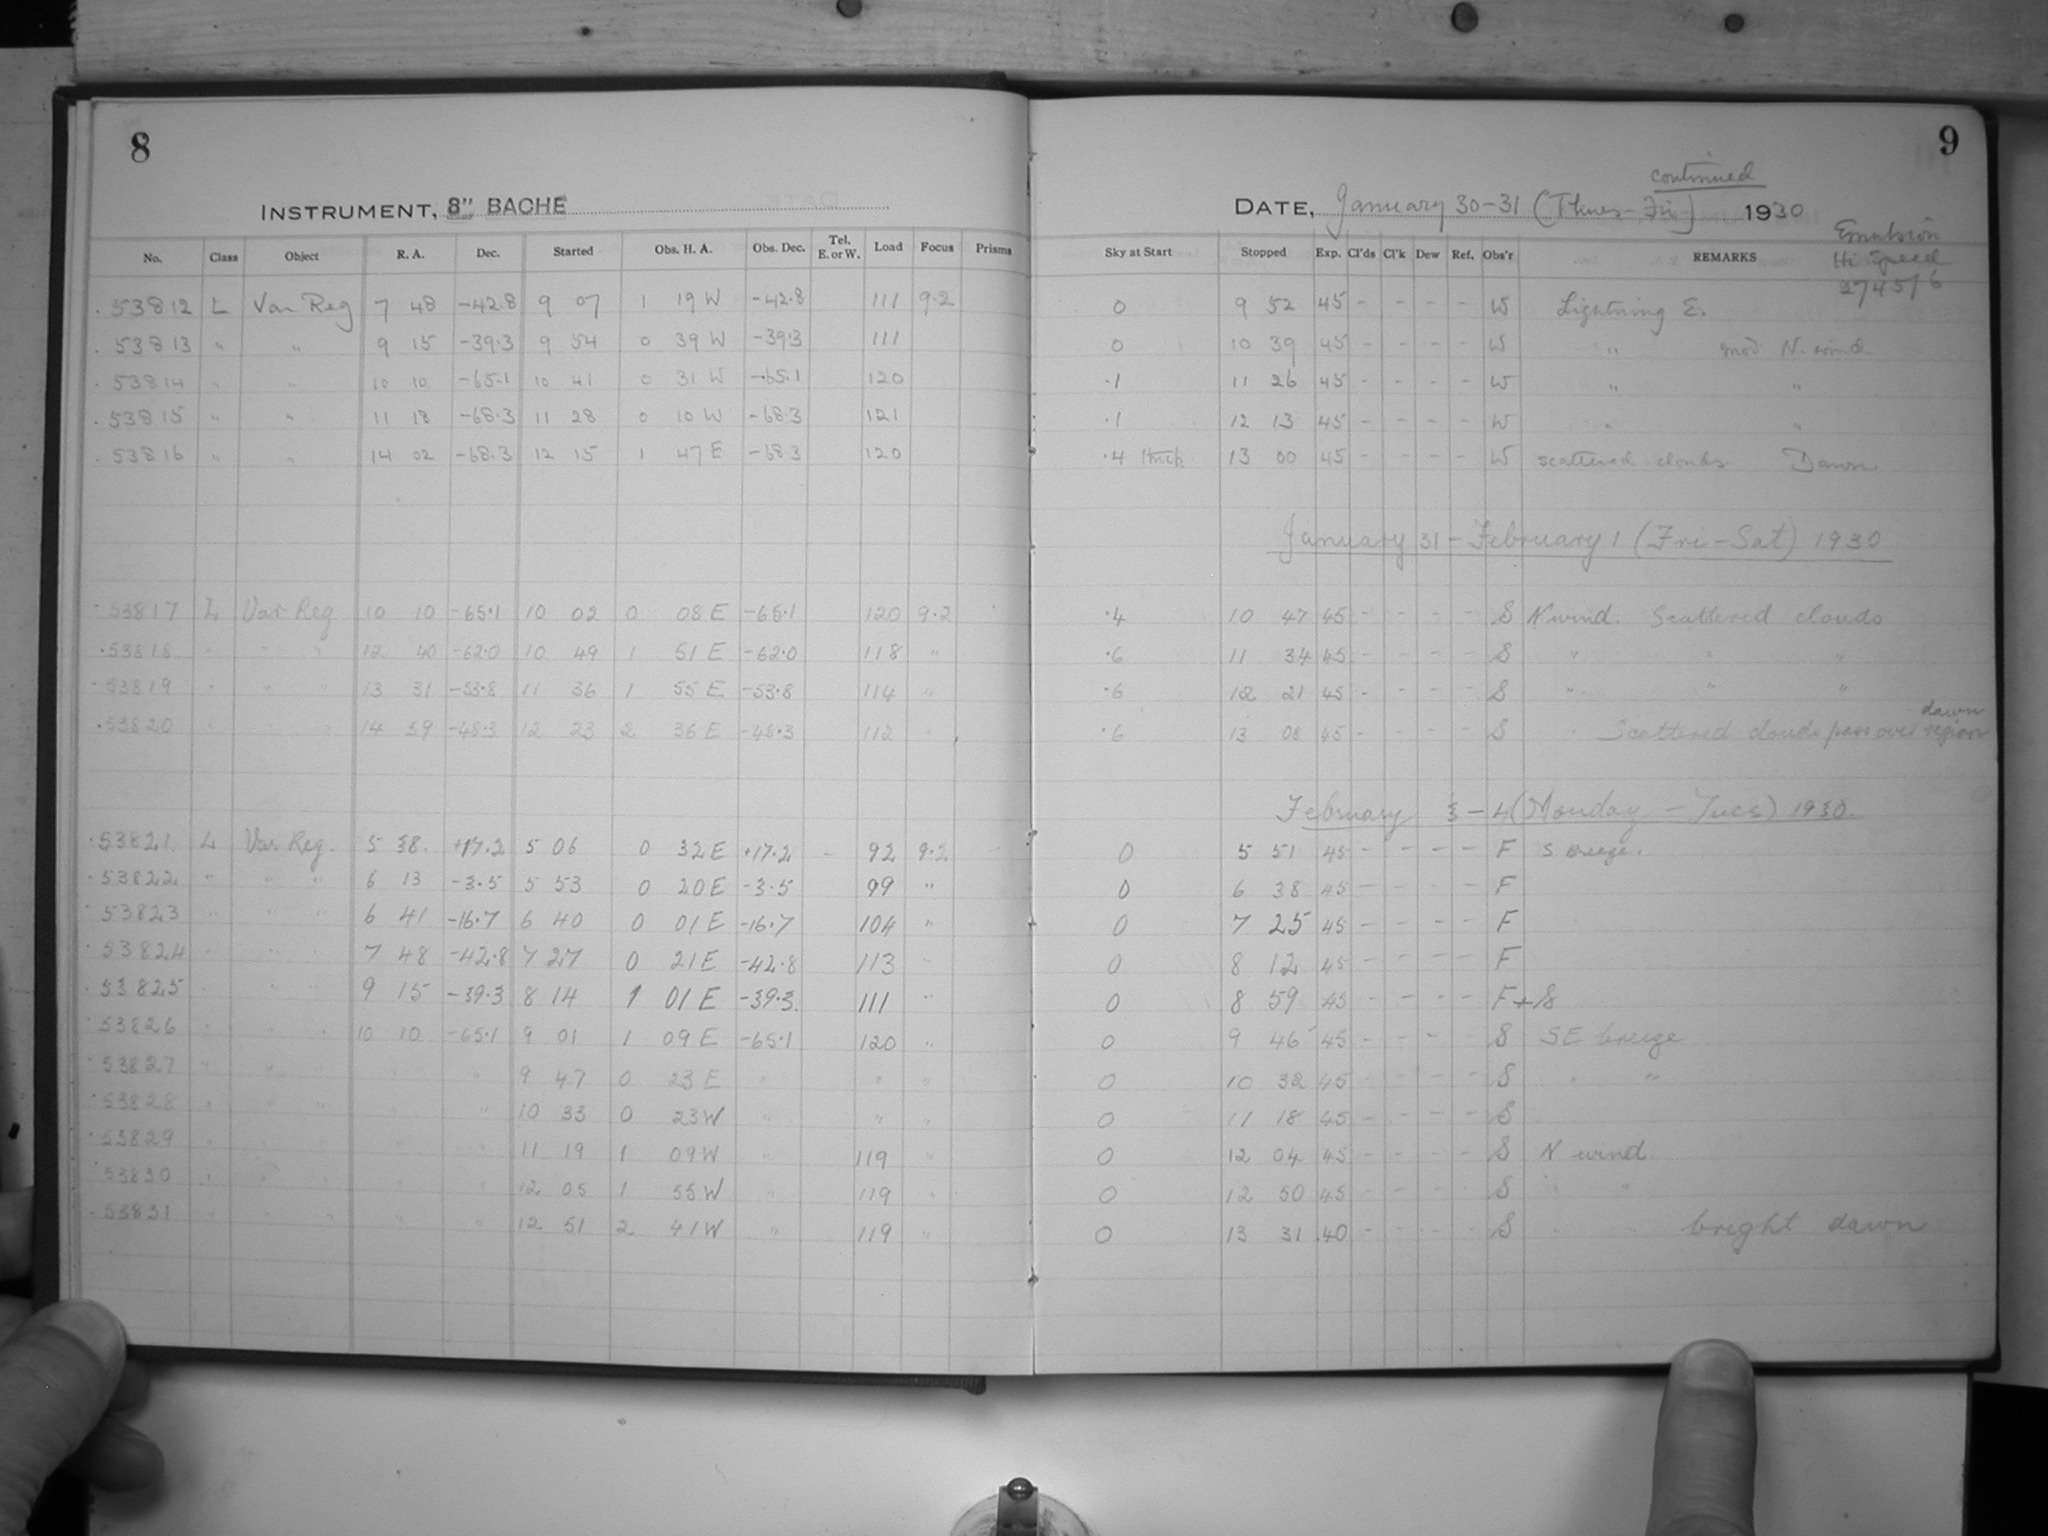 8
INSTRUMENT, 8" BACHE
No. Class Object R. A. Dec. Started Obs. H. A. Obs. Dec. Tel. E. or W. Load Focus Prisms
53812 L Var Reg 7 48 -42.8 9 07 1 19 W -42.8 111 9.2
53813 " " 9 15 -39.3 9 54 0 39 W -39.3 111
53814 " " 10 10 -65.1 10 41 0 31 W -65.1 120
53815 " " 11 18 -68.3 11 28 0 10 W -68.3 121
53816 " " 14 02 -68.3 12 15 1 47 E -68.3 120
53817 L Var Reg 10 10 -65.1 10 02 0 08 E -65.1 120 9.2
53818 " " " 12 40 -62.0 10 49 1 51 E -62.0 118 "
53819 " " " 13 31 -53.8 11 36 1 55 E -53.8 114 "
53820 " " " 14 59 -48.3 12 23 2 36 E -48.3 112 "
53821 L Var Reg. 5 38 +17.2 5 06 0 32 E +17.2 - 92 9.2
53822 " " " 6 13 -3.5 5 53 0 20 E -3.5 99 "
53823 " " " 6 41 -16.7 6 40 0 01 E -16.7 104 "
53824 " " " 7 48 -42.8 7 27 0 21 E -42.8 113 "
53825 " " " 9 15 -39.3 8 14 1 01 E -39.3 111 "
53826 " " " 10 10 -65.1 9 01 1 09 E -65.1 120 "
53827 " " " " " 9 47 0 23 E " " "
53828 " " " " " 10 33 0 23 W " " "
53829 " " " " " 11 19 1 09 W " 119 "
53830 " " " " " 12 05 1 55 W " 119 "
53831 " " " " " 12 51 2 41 W " 119 "
9
continued
DATE, January 30-31 (Thurs-Fri) 1930
Emulsion
Hi Speed
27451/6
Sky at Start Stopped Exp. Cl'ds Cl'k Dew Ref. Obs'r REMARKS
0 9 52 45 - - - - W Lightning E.
0 10 39 45 - - - - W " mod N. wind
.1 11 26 45 - - - - W " "
.1 12 13 45 - - - - W " "
.4 thick 13 00 45 - - - - W scattered clouds Dawn
January 31 - February 1 (Fri-Sat) 1930
.4 10 47 45 - - - - S N wind. Scattered clouds
.6 11 34 45 - - - - S " " "
.6 12 21 45 - - - - S " " "
dawn
.6 13 08 45 - - - - S " Scattered clouds pass over region
February 3-4 (Monday - Tues) 1930.
0 5 51 45 - - - - F S Breeze.
0 6 38 45 - - - - F
0 7 25 45 - - - - F
0 8 12 45 - - - - F
0 8 59 45 - - - - F + S
0 9 46 45 - - - - S SE breeze
0 10 32 45 - - - - S " "
0 11 18 45 - - - - S
0 12 04 45 - - - - S N wind
0 12 50 45 - - - - S " "
0 13 31 40 - - - - S " " bright dawn